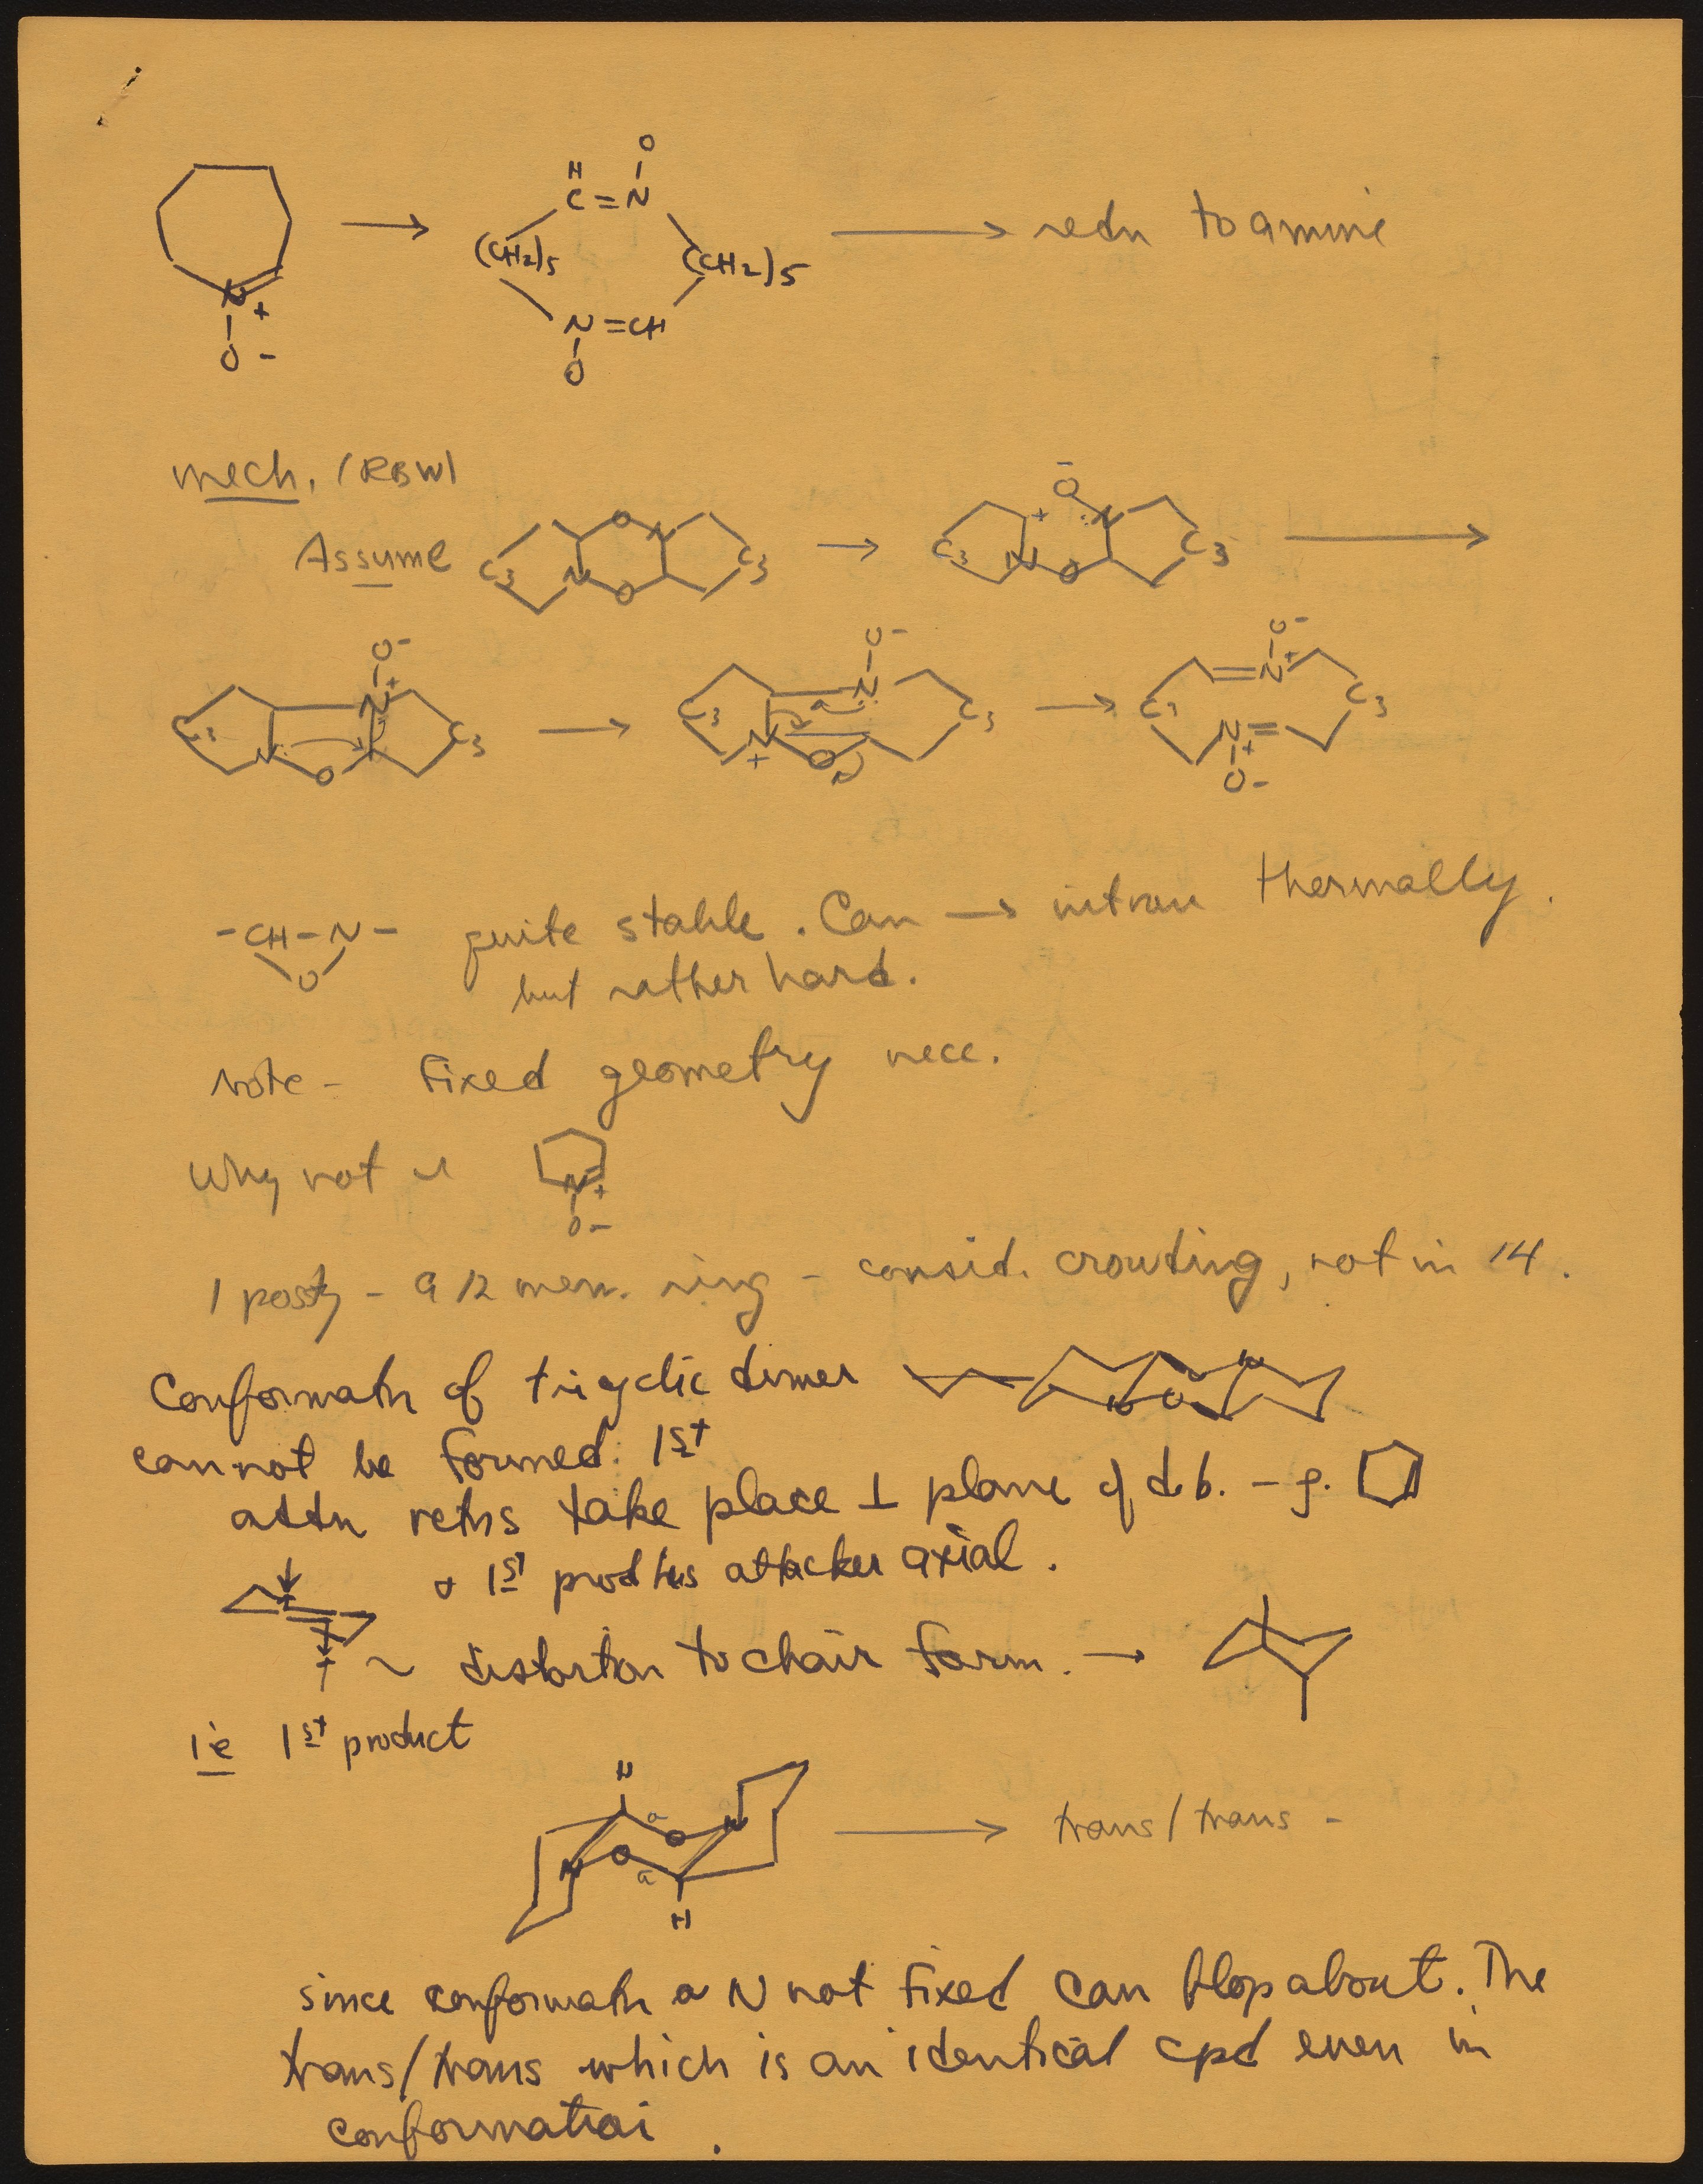 H O
C = N
(CH2)5 (CH2)5 → redn to amine
N
+
O -
N = CH
O
mech. (RBW)
Assume
C3 N O O N C3 → C3 N + O - N O C3 →
C3 N O N + O- C3 → C3 N + O N O- C3 → C3 N + O- N + O- C3
-CH-N- quite stable. Can → nitrone thermally.
O
but rather hard.
Note - Fixed geometry nece.
Why not
N +
O-
1 - a 12 mem. ring - consid. crowding, not in 14.
Conformatn of tricyclic dimer
N O N O
cannot be formed. 1st
addn retns take place ⊥ plane of d.b. - g.
+ 1st prod has attacker axial.
~ distortion to chair form. →
ie 1st product
H
a
N O O N → trans/trans -
a
H
since conformatn N not fixed can flop about. The
trans/trans which is an identical cpd even in